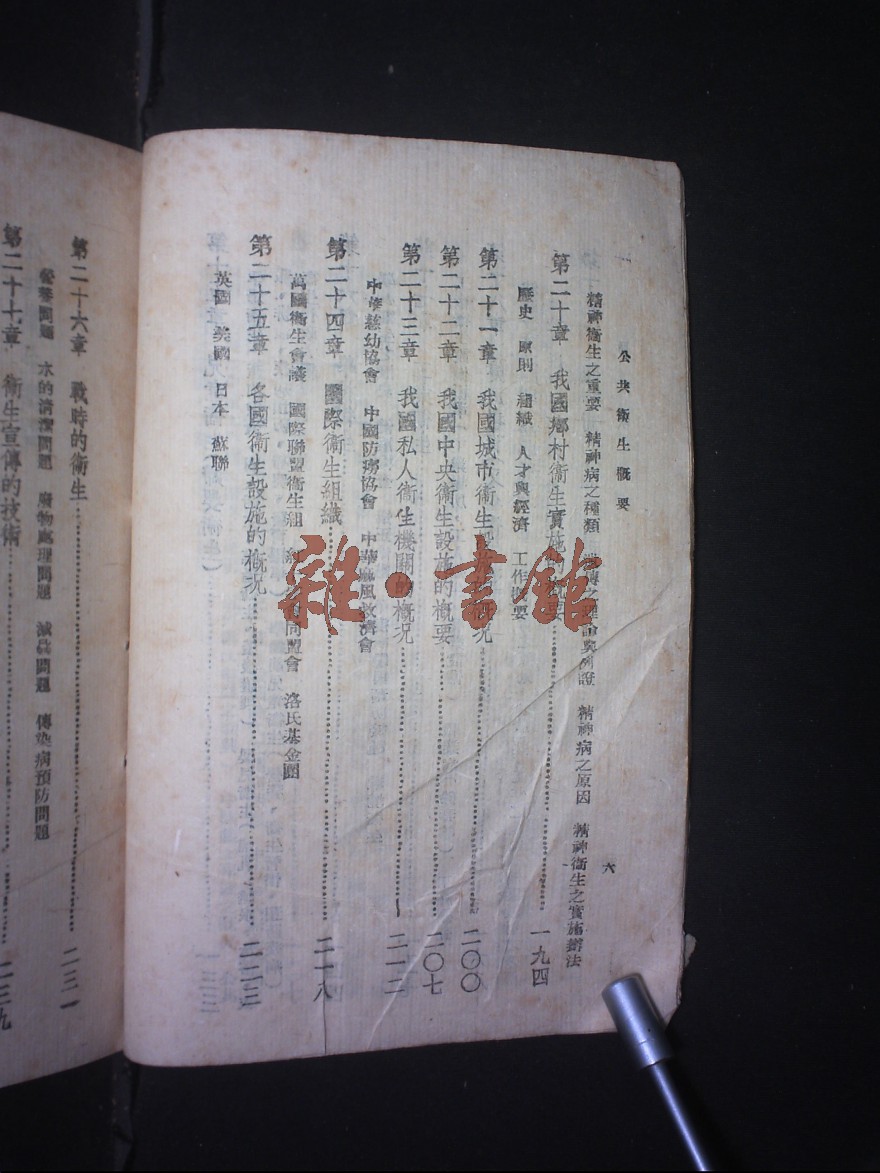 公共衞生概要
六
精神衞生之重要 精神病之種類 遺傳之理論與例證 精神病之原因 精神衞生之實施辦法
第二十章 我國鄉村衞生實施的概要 一九四
歷史 原則 組織 人才與經濟 工作概要
第二十一章 我國城市衞生 概況 二〇〇
第二十二章 我國中央衞生設施的概要 二〇七
第二十三章 我國私人衞生機關的概況 二一二
中華慈幼協會 中國防癆協會 中華麻風救濟會
第二十四章 國際衞生組織 二一八
萬國衞生會議 國際聯盟衞生組 同盟會 洛氏基金團
第二十五章 各國衞生設施的概況 二二三
英國 美國 日本 蘇聯
第二十六章 戰時的衞生 二三一
營養問題 水的清潔問題 廢物處理問題 滅蟲問題 傳染病預防問題
第二十七章 衞生宣傳的技術 二三九
雜·書館